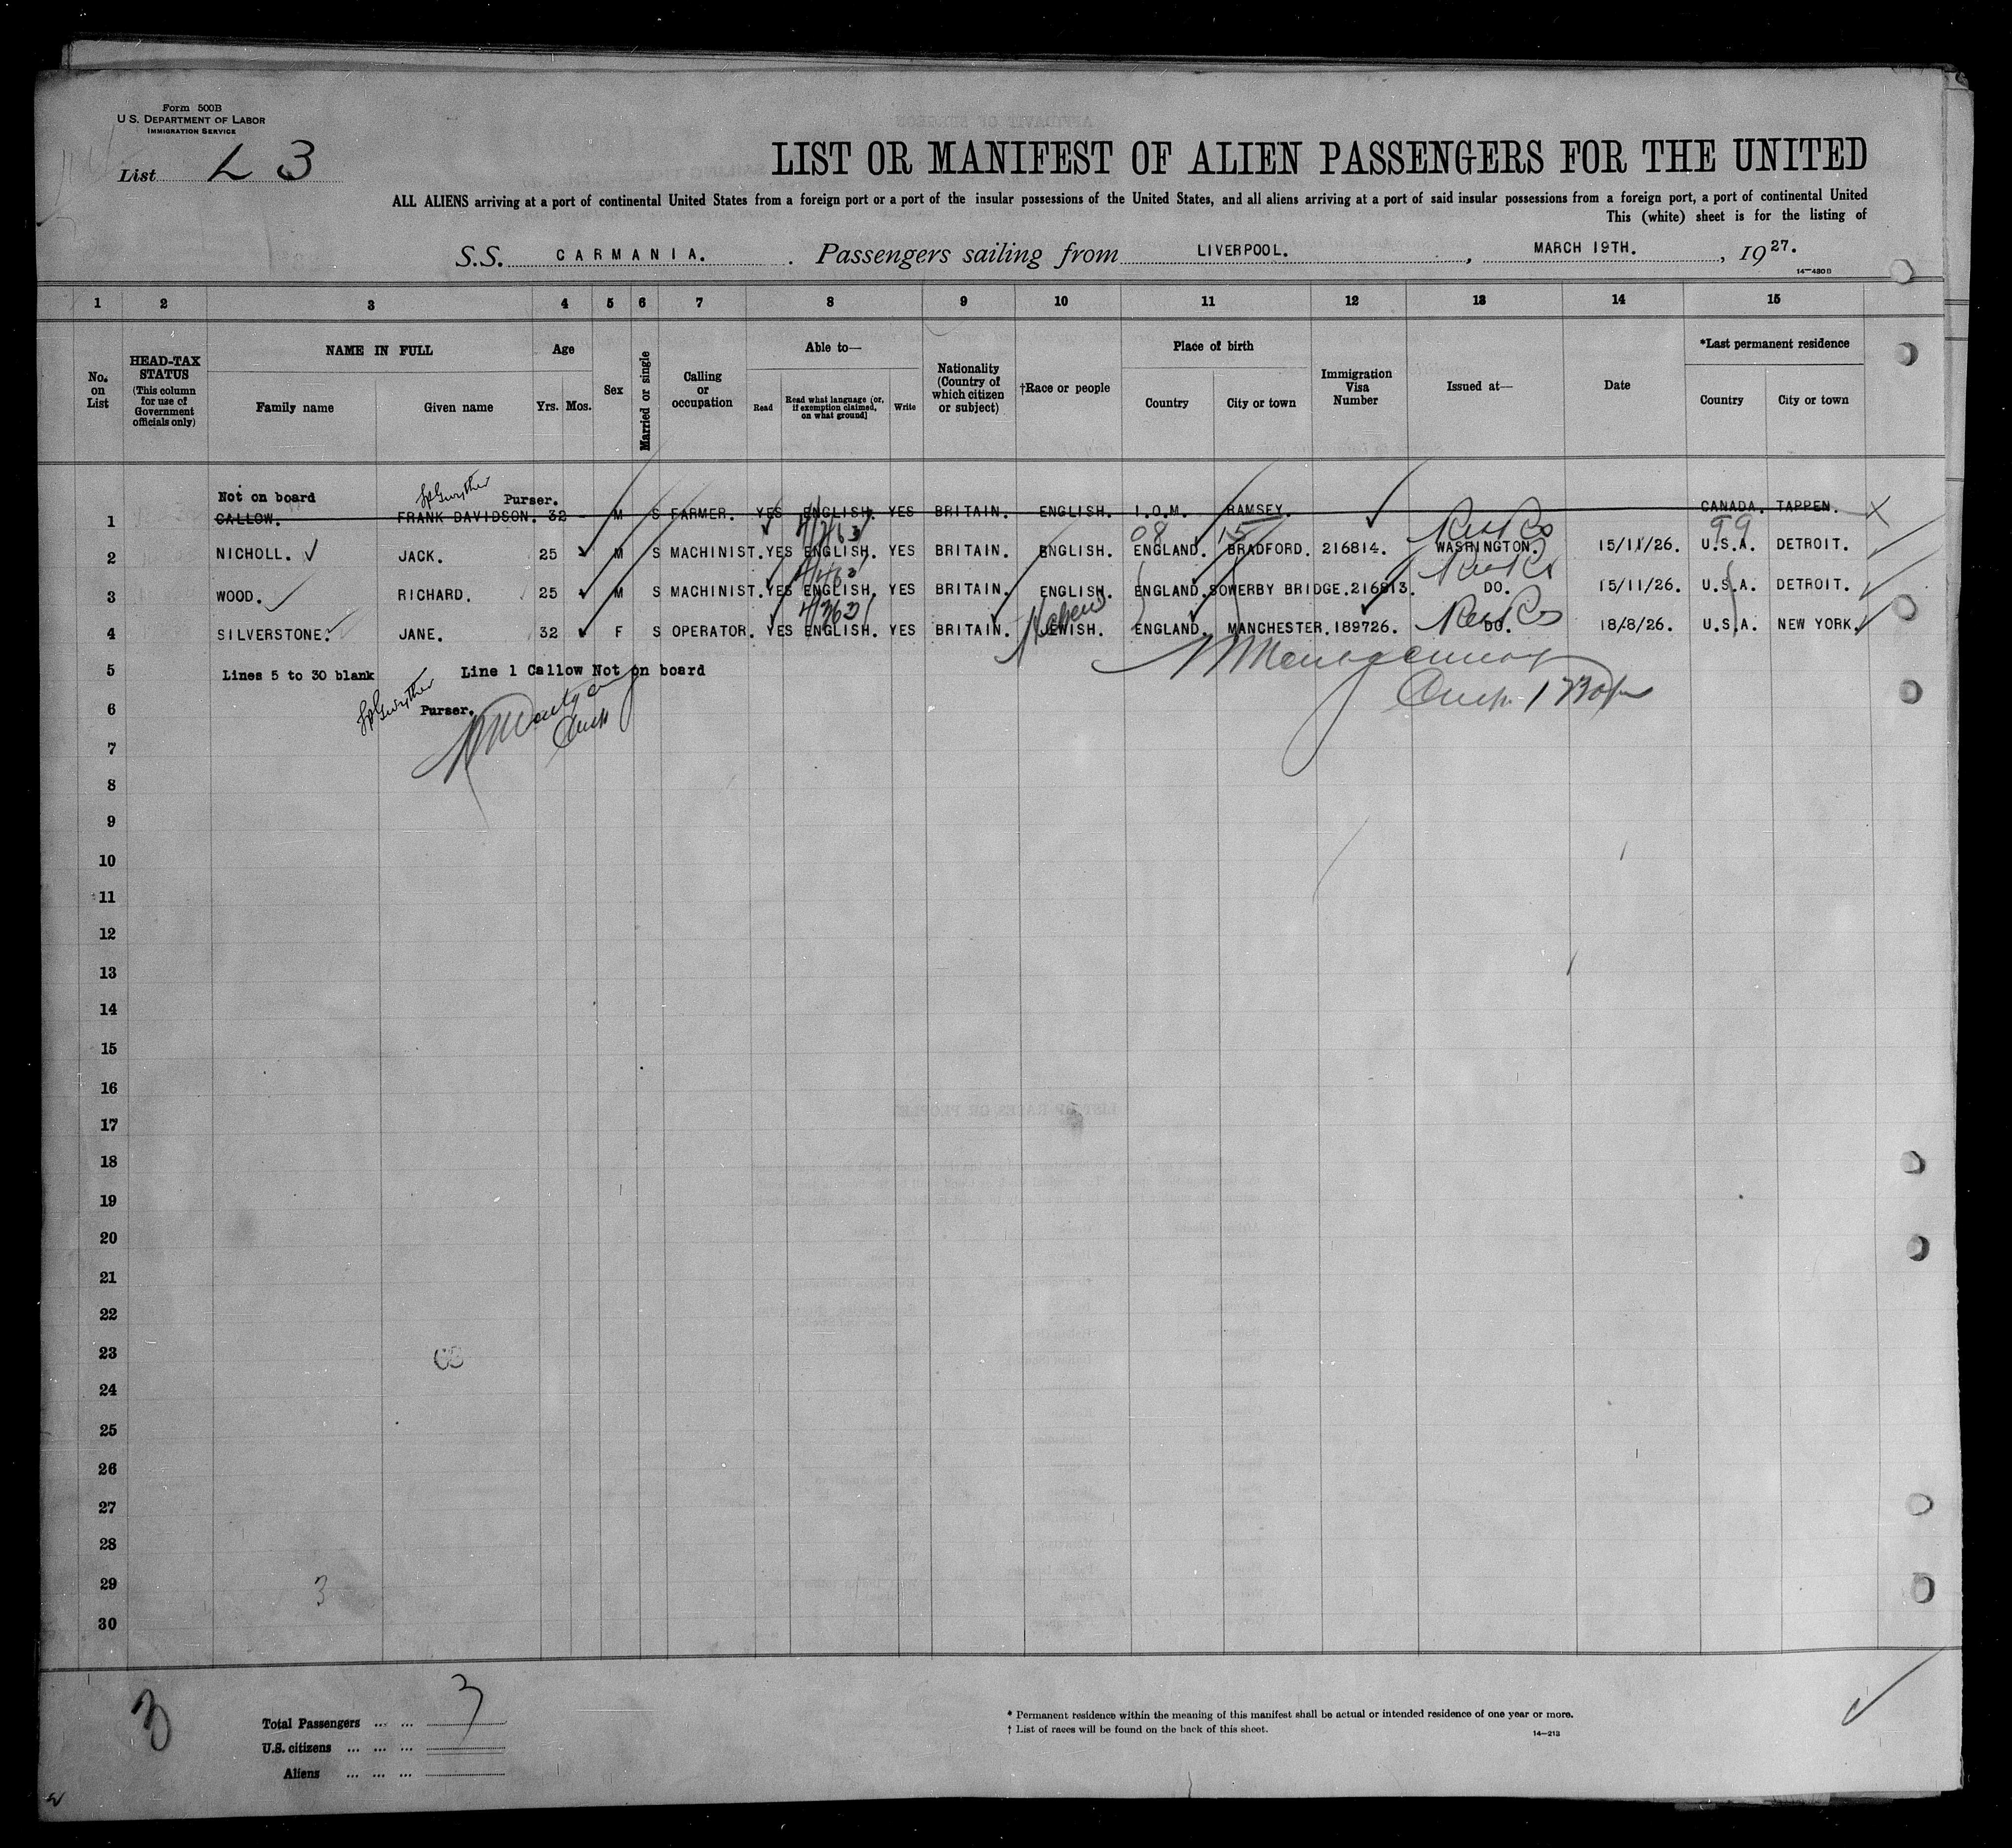 Form 500B
U S. DEPARTMENT OF LABOR
IMMIGRATION SERVICE
List L 3
LIST OR MANIFEST OF ALIEN PASSENGERS FOR THE UNITED
ALL ALIENS arriving at a port of continental United States from a foreign port or a port of the insular possessions of the United States, and all aliens arriving at a port of said insular possessions from a foreign port, a port of continental United
This (white) sheet is for the listing of
S.S. CARMANIA. . Passengers sailing from LIVERPOOL. , MARCH 19TH. , 1927.
14—480 B
1 2 3 4 5 6 7 8 9 10 11 12 13 14 15
No. on List
HEAD-TAX STATUS (This column for use of Government officials only)
NAME IN FULL
Family name Given name
Age
Yrs. Mos.
Sex
Married or single
Calling or occupation
Able to—
Read Read what language [or, if exemption claimed, on what ground] Write
Nationality (Country of which citizen or subject)
†Race or people
Place of birth
Country City or town
Immigration Visa Number
Issued at—
Date
*Last permanent residence
Country City or town
Not on board Purser.
1 CALLOW. FRANK DAVIDSON. 32 - M S FARMER. YES ENGLISH. YES BRITAIN. ENGLISH. I.O.M. RAMSEY. CANADA. TAPPEN. X
08 15 99
2 NICHOLL. JACK. 25 M S MACHINIST. YES ENGLISH. YES BRITAIN. ENGLISH. ENGLAND. BRADFORD. 216814. WASHINGTON. 15/11/26. U.S.A. DETROIT.
3 WOOD. RICHARD. 25 M S MACHINIST. YES ENGLISH. YES BRITAIN. ENGLISH. ENGLAND. SOWERBY BRIDGE. 216813. DO. 15/11/26. U.S.A. DETROIT.
4 SILVERSTONE. JANE. 32 F S OPERATOR. YES ENGLISH. YES BRITAIN. JEWISH. ENGLAND. MANCHESTER. 189726. DO. 18/8/26. U.S.A. NEW YORK.
5 Lines 5 to 30 blank Line 1 Callow Not on board
6 Purser.
7
8
9
10
11
12
13
14
15
16
17
18
19
20
21
22
23
24
25
26
27
28
29 3
30
3
Total Passengers ... ... 3
U.S. citizens ... ... ...
Aliens ... ... ...
* Permanent residence within the meaning of this manifest shall be actual or intended residence of one year or more.
† List of races will be found on the back of this sheet.
14—213